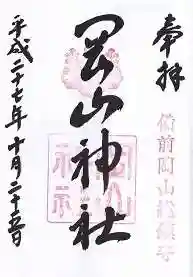 奉拝
備前岡山総鎮守
岡山神社
平成二十七年十月二十五日